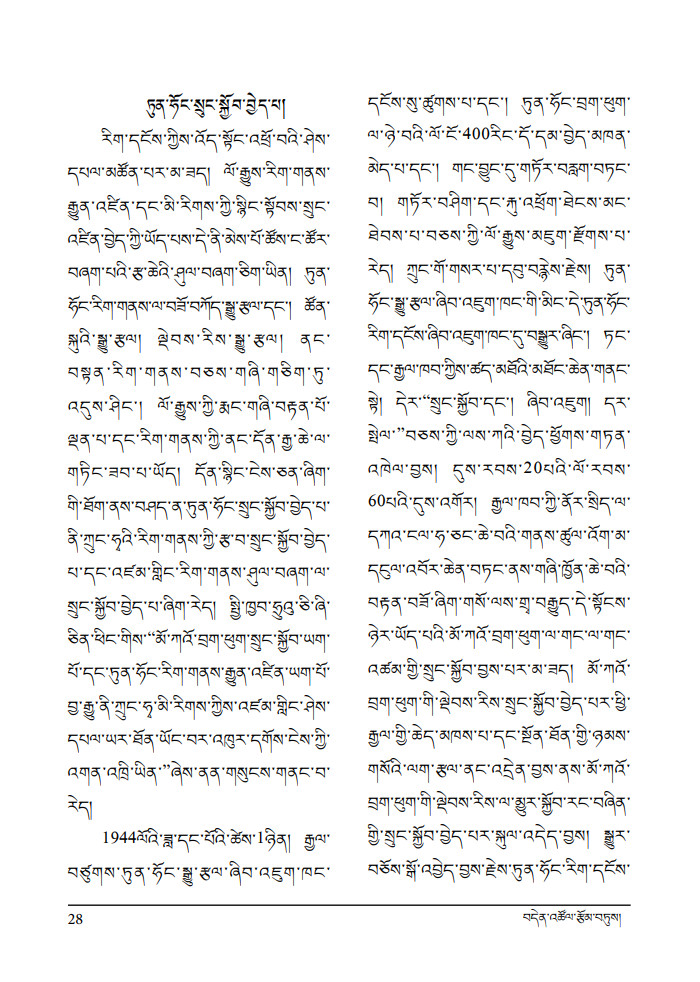 ཏུན་ཧོང་སྲུང་སྐྱོབ་བྱེད་པ།
རིག་དངོས་ཀྱིས་འོད་སྟོང་འཕྲོ་བའི་ཤེས་
དཔལ་མཚོན་པར་མ་ཟད། ལོ་རྒྱུས་རིག་གནས་
རྒྱུན་འཛིན་དང་མི་རིགས་ཀྱི་སྙིང་སྟོབས་སྲུང་
འཛིན་བྱེད་ཀྱི་ཡོད་པས་དེ་ནི་མེས་པོ་ཚོས་ང་ཚོར་
བཞག་པའི་རྩ་ཆེའི་ཤུལ་བཞག་ཅིག་ཡིན། ཏུན་
ཧོང་རིག་གནས་ལ་བཟོ་བཀོད་སྒྱུ་རྩལ་དང་། ཚོན་
སྐུའི་སྒྱུ་རྩལ། ལྡེབས་རིས་སྒྱུ་རྩལ། ནང་
བསྟན་རིག་གནས་བཅས་གཞི་གཅིག་ཏུ་
འདུས་ཤིང་། ལོ་རྒྱུས་ཀྱི་རྨང་གཞི་བརྟན་པོ་
ལྡན་པ་དང་རིག་གནས་ཀྱི་ནང་དོན་རྒྱ་ཆེ་ལ་
གཏིང་ཟབ་པ་ཡོད། དོན་སྙིང་ངེས་ཅན་ཞིག་
གི་ཐོག་ནས་བཤད་ན་ཏུན་ཧོང་སྲུང་སྐྱོབ་བྱེད་པ་
ནི་ཀྲུང་ཧྭའི་རིག་གནས་ཀྱི་རྩ་བ་སྲུང་སྐྱོབ་བྱེད་
པ་དང་འཛམ་གླིང་རིག་གནས་ཤུལ་བཞག་ལ་
སྲུང་སྐྱོབ་བྱེད་པ་ཞིག་རེད། སྤྱི་ཁྱབ་ཧྲུའུ་ཅི་ཞི་
ཅིན་ཕིང་གིས་“མོ་ཀའོ་བྲག་ཕུག་སྲུང་སྐྱོབ་ཡག་
པོ་དང་ཏུན་ཧོང་རིག་གནས་རྒྱུན་འཛིན་ཡག་པོ་
བྱ་རྒྱུ་ནི་ཀྲུང་ཧྭ་མི་རིགས་ཀྱིས་འཛམ་གླིང་ཤེས་
དཔལ་ཡར་ཐོན་ཡོང་བར་འཁུར་དགོས་ངེས་ཀྱི་
འགན་འཁྲི་ཡིན་”ཞེས་ནན་གསུངས་གནང་བ་
རེད།
1944ལོའི་ཟླ་དང་པོའི་ཚེས་1ཉིན། རྒྱལ་
བཙུགས་ཏུན་ཧོང་སྒྱུ་རྩལ་ཞིབ་འཇུག་ཁང་
དངོས་སུ་ཚུགས་པ་དང་། ཏུན་ཧོང་བྲག་ཕུག་
ལ་ཉེ་བའི་ལོ་ངོ་400རིང་དོ་དམ་བྱེད་མཁན་
མེད་པ་དང་། གང་བྱུང་དུ་གཏོར་བརླག་བཏང་
བ། གཏོར་བཤིག་དང་རྐུ་འཕྲོག་ཐེངས་མང་
ཐེབས་པ་བཅས་ཀྱི་ལོ་རྒྱུས་མཇུག་རྫོགས་པ་
རེད། ཀྲུང་གོ་གསར་པ་དབུ་བརྙེས་རྗེས། ཏུན་
ཧོང་སྒྱུ་རྩལ་ཞིབ་འཇུག་ཁང་གི་མིང་དེ་ཏུན་ཧོང་
རིག་དངོས་ཞིབ་འཇུག་ཁང་དུ་བསྒྱུར་ཞིང་། ཏང་
དང་རྒྱལ་ཁབ་ཀྱིས་ཚད་མཐོའི་མཐོང་ཆེན་གནང་
སྟེ། དེར་“སྲུང་སྐྱོབ་དང་། ཞིབ་འཇུག། དར་
སྤེལ་”བཅས་ཀྱི་ལས་ཀའི་བྱེད་ཕྱོགས་གཏན་
འཁེལ་བྱས། དུས་རབས་20པའི་ལོ་རབས་
60པའི་དུས་འགོར། རྒྱལ་ཁབ་ཀྱི་ནོར་སྲིད་ལ་
དཀའ་ངལ་ཧ་ཅང་ཆེ་བའི་གནས་ཚུལ་འོག་མ་
དངུལ་འབོར་ཆེན་བཏང་ནས་གཞི་ཁྱོན་ཆེ་བའི་
བརྟན་བཟོ་ཞིག་གསོ་ལས་གྲྭ་བརྒྱུད་དེ་སྟོངས་
ཉེར་ཡོད་པའི་མོ་ཀའོ་བྲག་ཕུག་ལ་གང་ལ་གང་
འཚམ་གྱི་སྲུང་སྐྱོབ་བྱས་པར་མ་ཟད། མོ་ཀའོ་
བྲག་ཕུག་གི་ལྡེབས་རིས་སྲུང་སྐྱོབ་བྱེད་པར་ཕྱི་
རྒྱལ་གྱི་ཆེད་མཁས་པ་དང་སྔོན་ཐོན་གྱི་ཉམས་
གསོའི་ལག་རྩལ་ནང་འདྲེན་བྱས་ནས་མོ་ཀའོ་
བྲག་ཕུག་གི་ལྡེབས་རིས་ལ་མྱུར་སྐྱོབ་རང་བཞིན་
གྱི་སྲུང་སྐྱོབ་བྱེད་པར་སྐུལ་འདེད་བྱས། སྒྱུར་
བཅོས་སྒོ་འབྱེད་བྱས་རྗེས་ཏུན་ཧོང་རིག་དངོས་
28
བདེན་འཚོལ་རྩོམ་བཏུས།